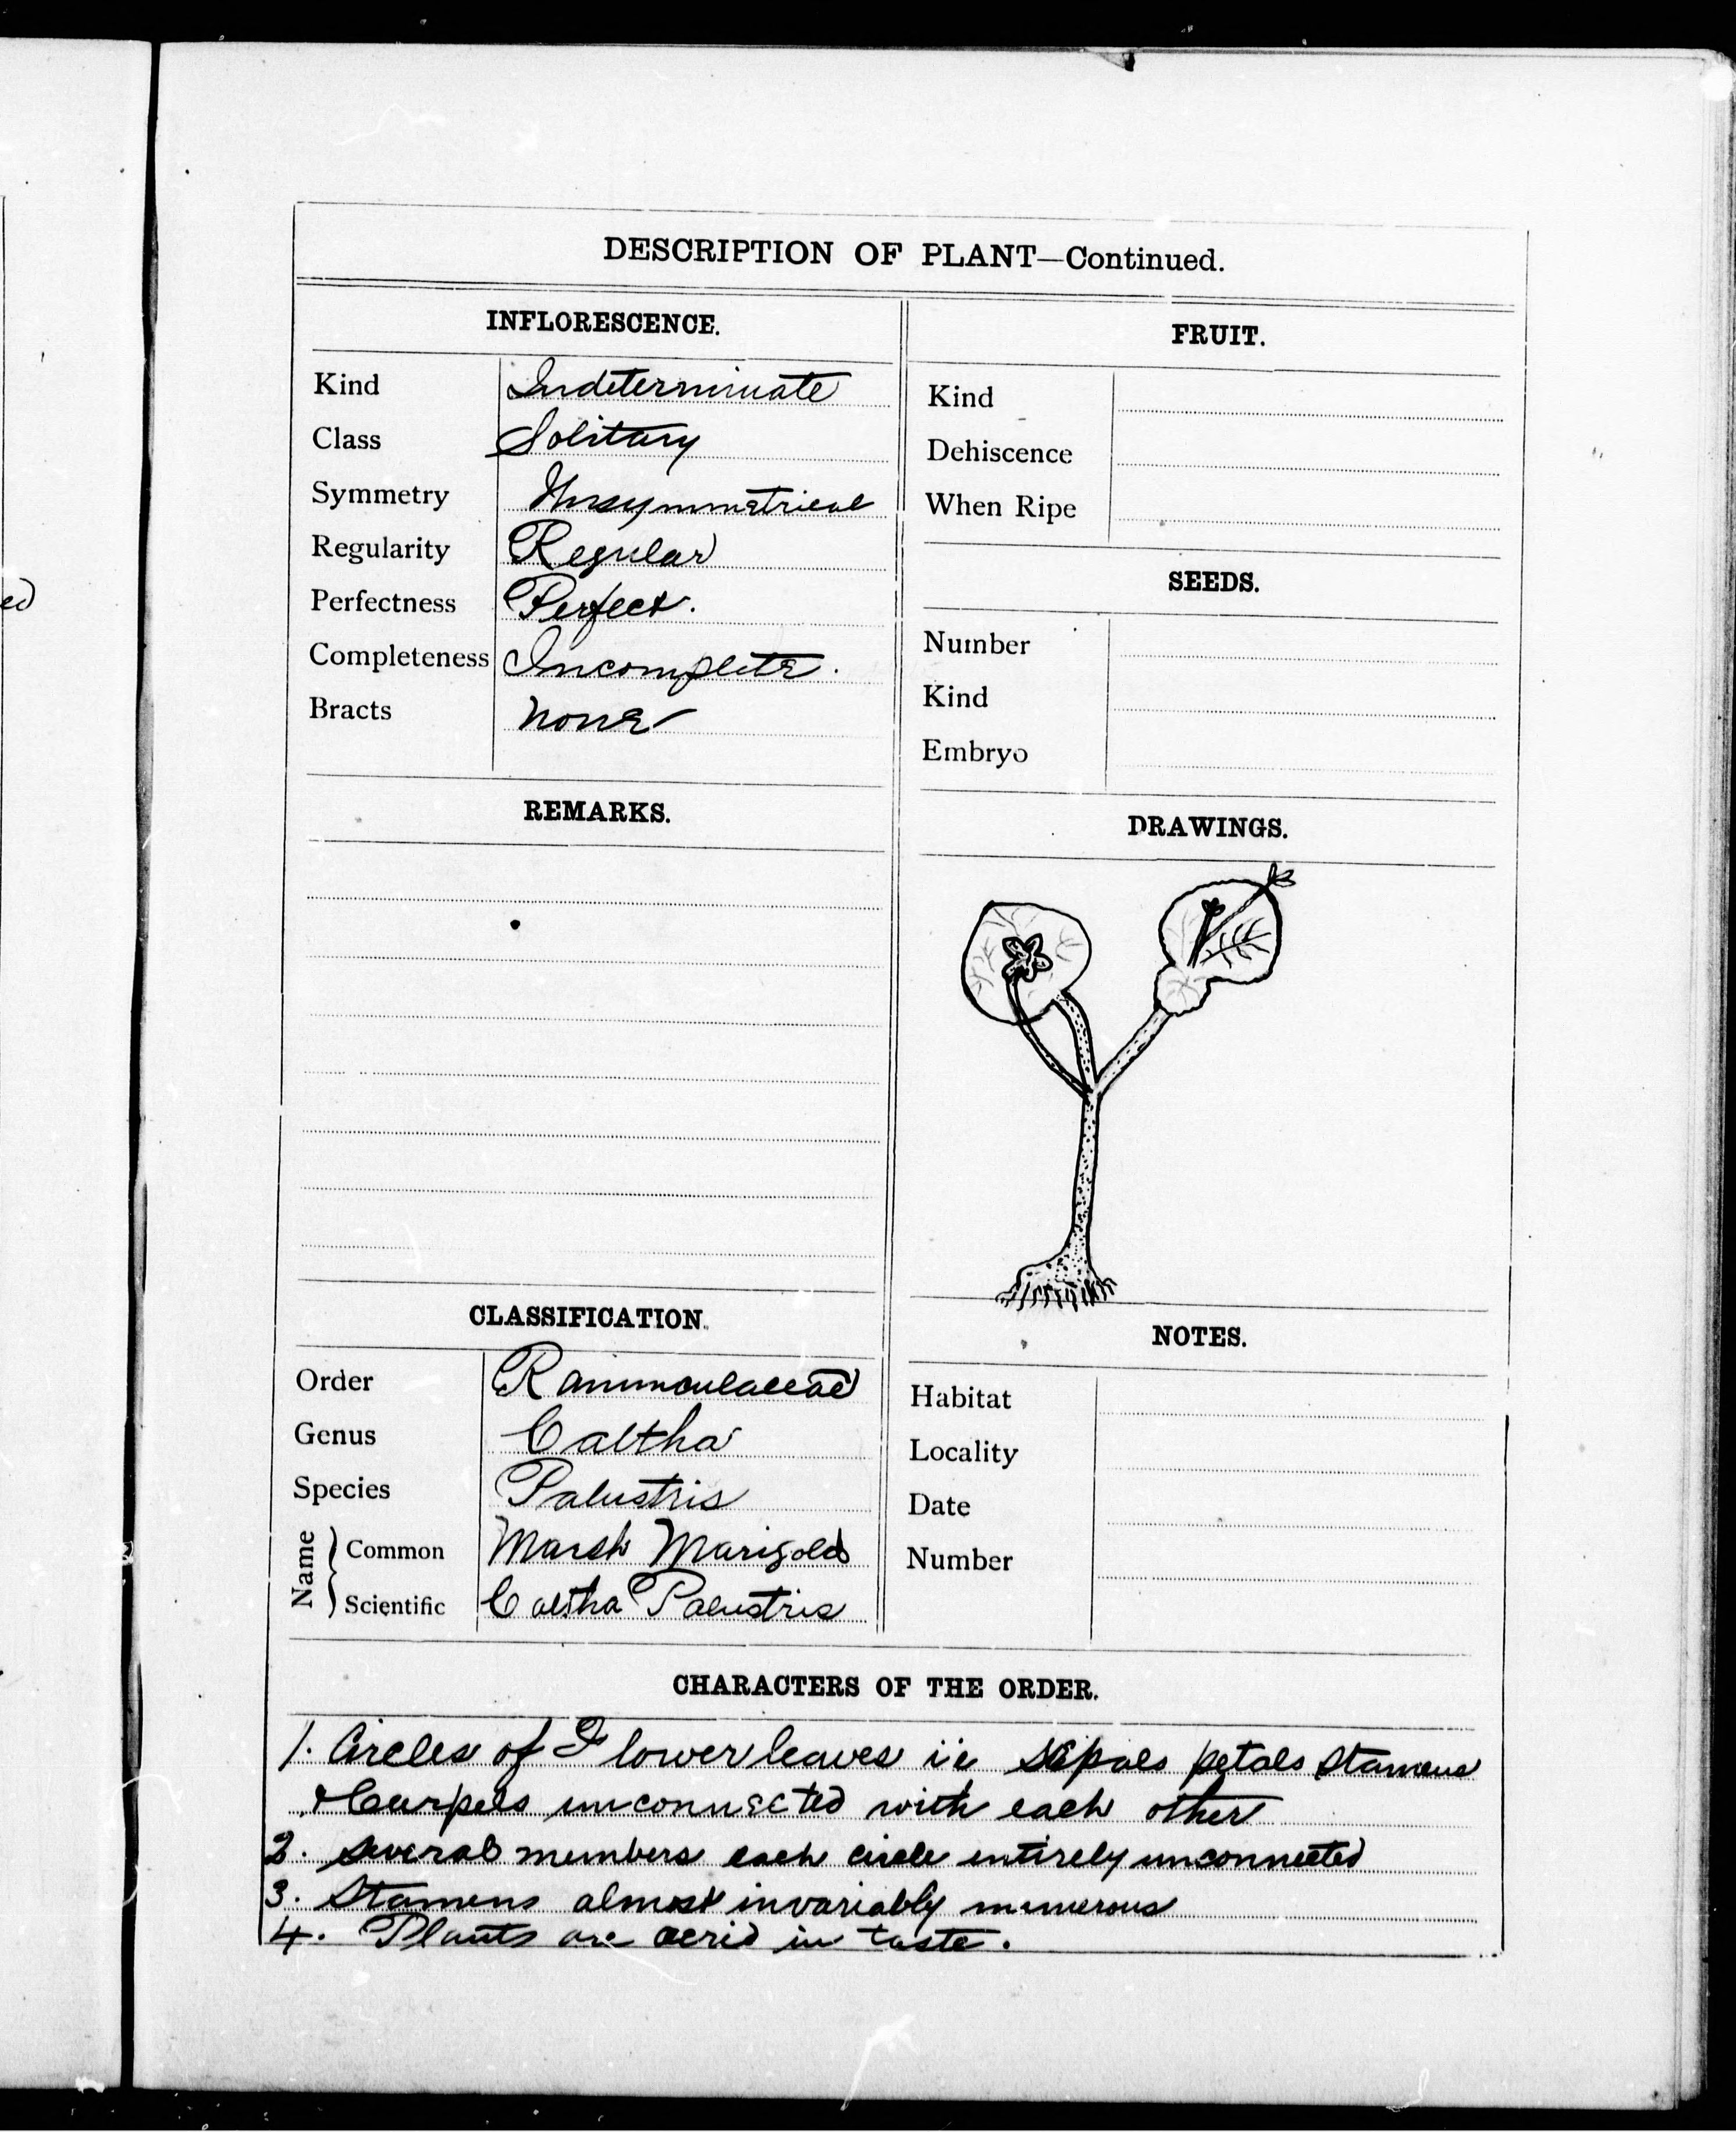 ed
DESCRIPTION OF PLANT—Continued.
INFLORESCENCE.
Kind Indeterminate
Class Solitary
Symmetry Unsymmetrical
Regularity Regular
Perfectness Perfect.
Completeness Incomplete.
Bracts none
REMARKS.
CLASSIFICATION.
Order Ranunculaceae
Genus Caltha
Species Palustris
Name
Common Marsh Marigold
Scientific Caltha Palustris
FRUIT.
Kind
Dehiscence
When Ripe
SEEDS.
Number
Kind
Embryo
DRAWINGS.
NOTES.
Habitat
Locality
Date
Number
CHARACTERS OF THE ORDER.
1. Circles of Flower leaves i'e sepals petals stamens
& Carpels unconnected with each other
2. several members each circle entirely unconnected
3. Stamens almost invariably numerous
4. Plants are acrid in taste.